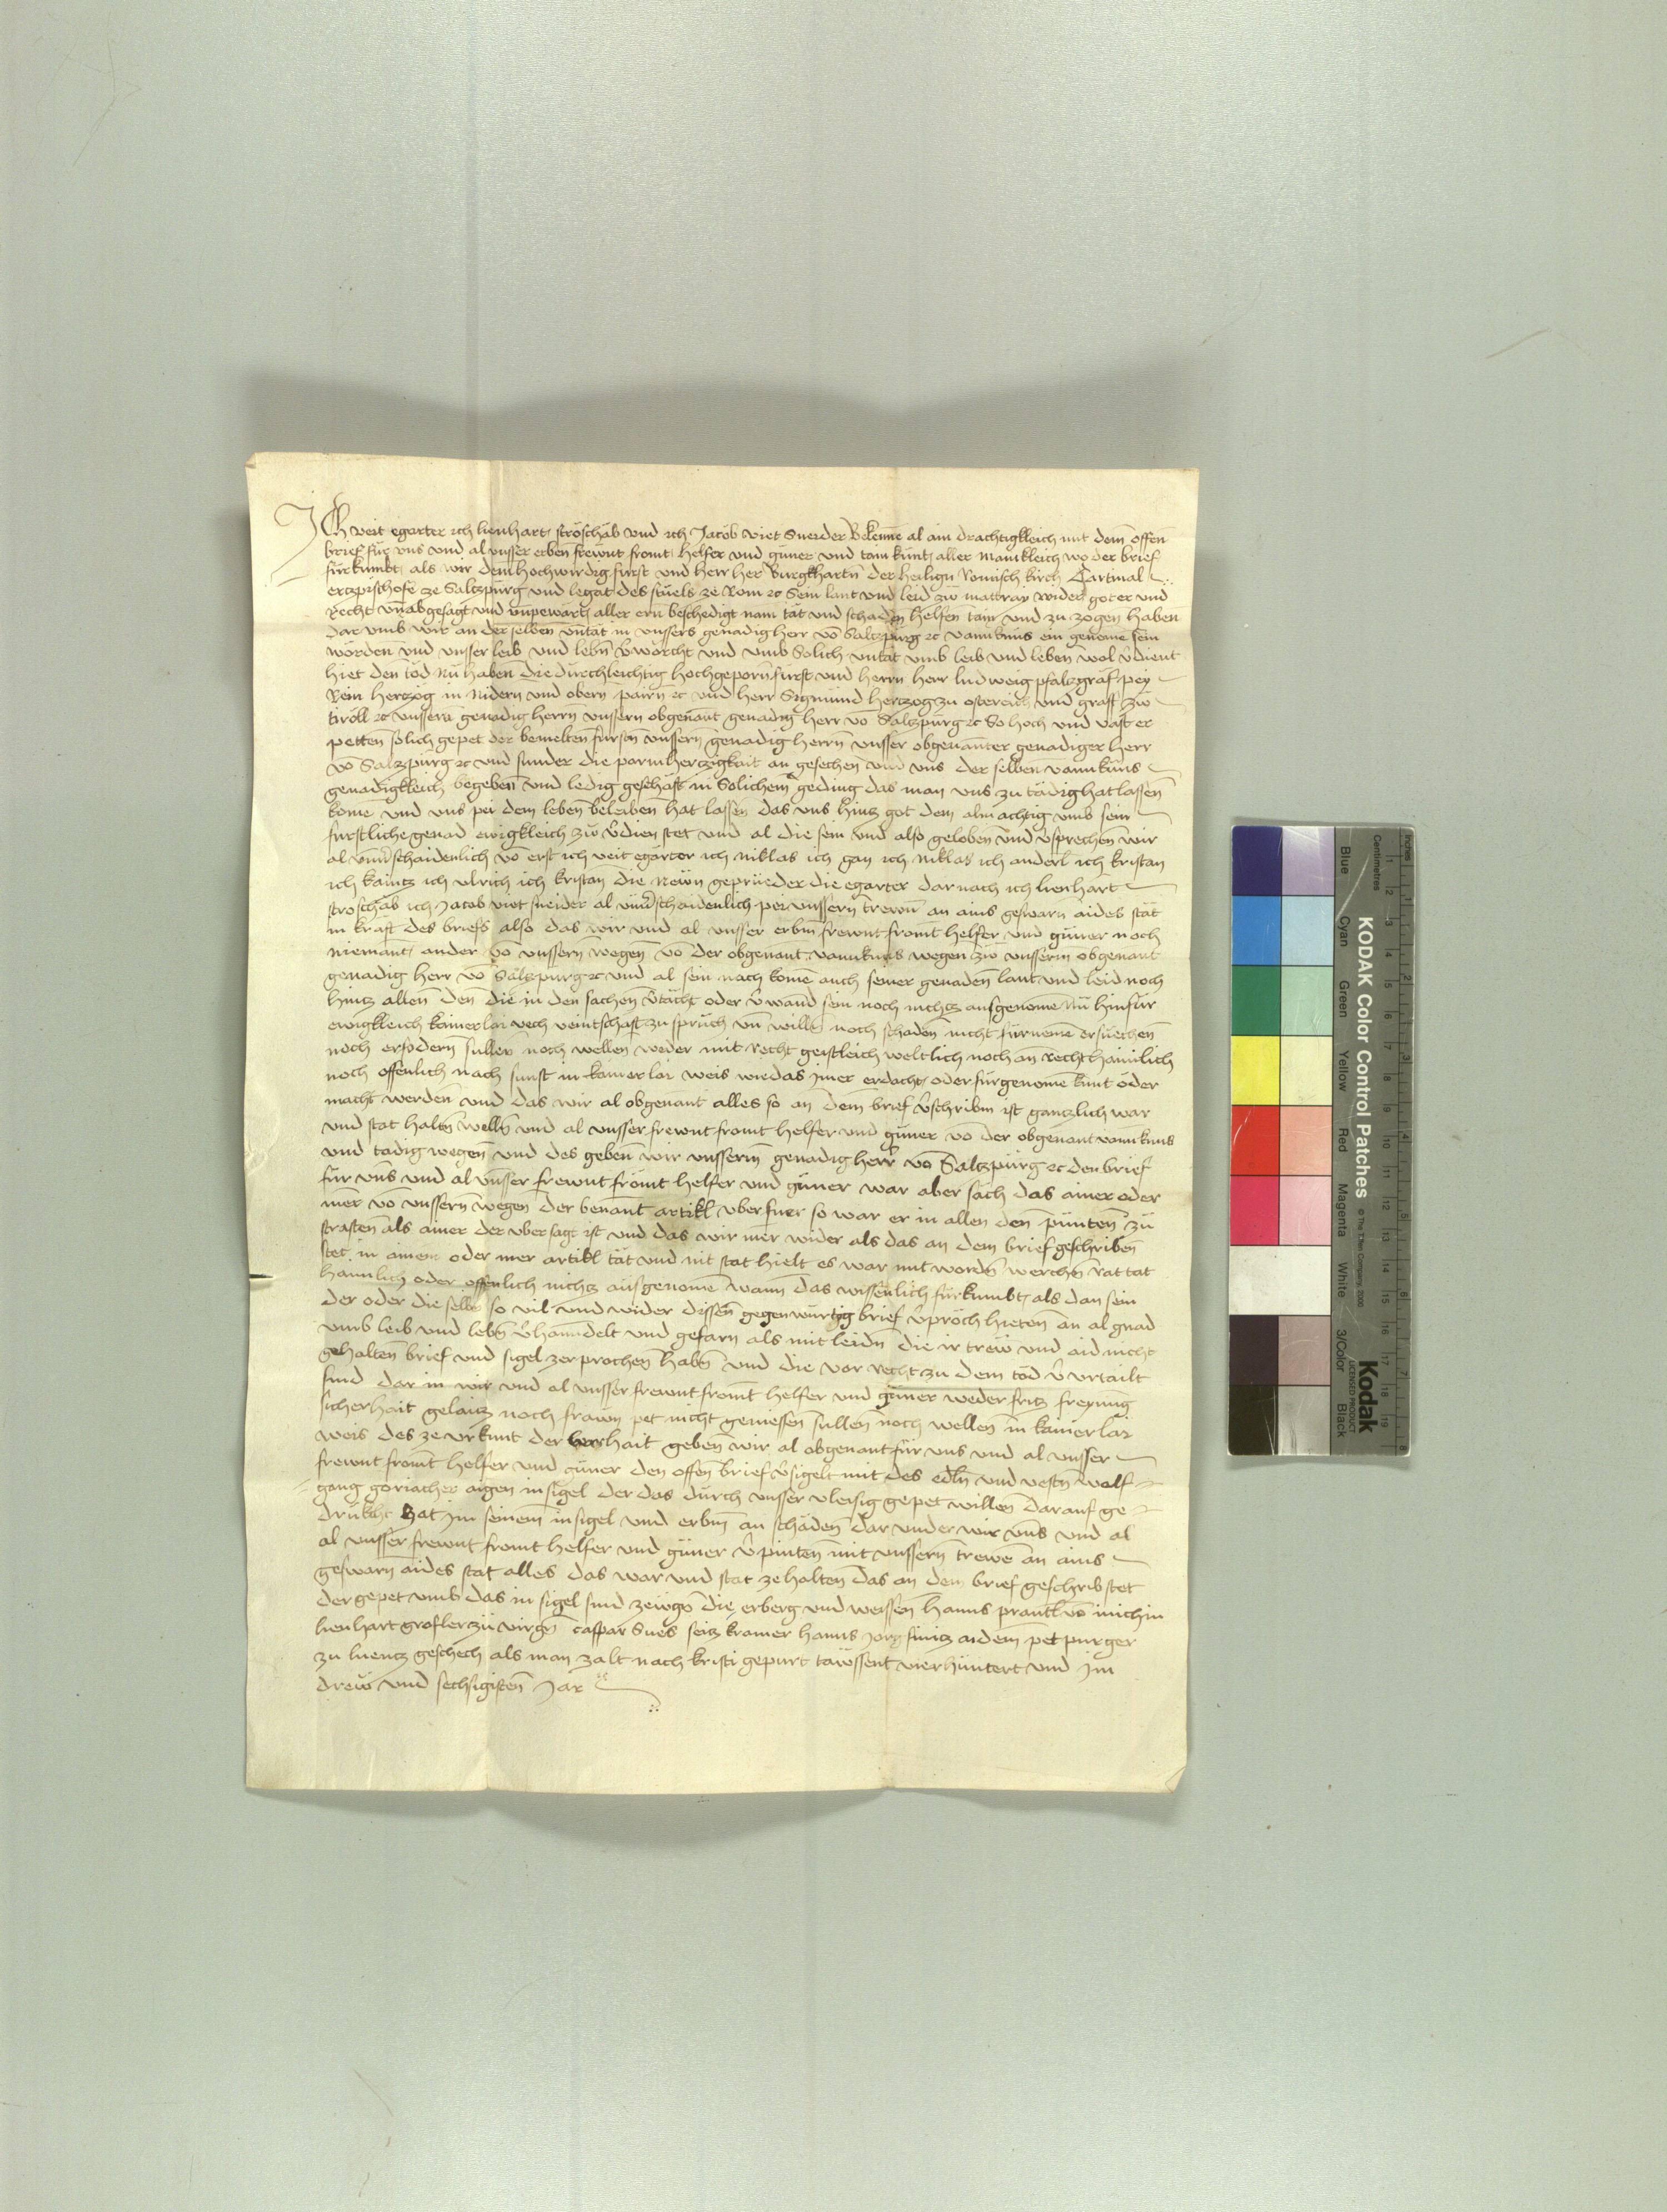 ICh veit egarter ich lienhart ströschab vnd ich Jacob viet Sneider Bekenne al ain drachtigkleich mit dem offen
brief für vns vnd al vnsser erben frewnt fromt helfer vnd guner vnd tain kunt aller mainkleich wo der brief
fürkumbt als wir dem hochwirdig fürst vnd herr her Burgkhartn der heilign Romisch kirch Cartinal
ertzpischofe ze Saltzpurg vnd legat des stuels ze Rom ec Sein lant vnd leid zw mattray wider got er vnd
Recht vnabgesagt vnd vnpewart aller ern beschedigt nam tat vnd schaden helfen tain vnd zu zogen haben
dar vmb wir an der selben vntat in vnssers genadig herr vo Saltzpurg ec vannknus ein genome sein
worden vnd vnsser leib vnd lebn v̉worcht vnd vmb Solich vntat vmb leib vnd leben wol v̉dient
hiet den tod Nu haben die durchleichtig hochgeporn fürst vnd herrn herr ludweig pfalzgraf pey
Rein hertzog in Nidern vnd obern pairn ec vnd herr Sigmund hertzog zu ostereich vnd graff zw
tiröll ec vnssern genadig herrn vnssern obgenant genadig herr vo Saltzpurg ec So hoch vnd vast er
petten solich gepet der bemelten fürstn vnssern genadig herrn vnsser obgenanter genadiger herr
vo Salzpurg ec vnd sunder die parmhertzigkait an gesechen vnd vns der selben vannknus
genadigkleich begeben vnd ledig geschaft in Solichem geding das man vns zu tädig hat lassen
kome vnd vns pei dem leben beleiben hat lassen das vns hintz got dem almachtig vmb sein
furstliche genad ewigkleich zw v̉dien stet vnd al die sein vnd also geloben vnd v̉sprechen wir
al vnv̉schaidenlich vo erst ich veit egarter ich Niklas ich gan ich Niklas ich anderl ich kristan
ich kaintz ich vlrich ich kristan die Newn geprüeder die egarter dar nach ich lienhart
stroschab ich Jacob viet sneider al vnv̉schaidenlich pei vnssern trewn an ains geswarn aides stat
in kraft des briefs also das wir vnd al vnsser erbm frewnt fromt helfer vnd güner noch
niemant ander vo vnssern wegen vo der obgenant vannknus wegen zw vnsserm obgenant
genadig herr vo Saltzpurg ec vnd al sein nach kome auch seiner genaden lant vnd leid noch
hintz allen den die in den sachen v̉tacht oder v̉wand sein noch nichtz ausgenome nu hinfür
ewigkleich kainerlai vech veintschaft zu spruch vn willn noch schaden nicht fürneme ersuechen
noch erfodern sullen noch wellen weder mit recht geistleich weltlich noch an recht haimlich
noch offenlich nach sunst in kainerlai weis wie das imer erdacht oder fürgenome kunt oder
macht werden vnd das wir al obgenant alles so an dem brief v̉schribm ist gantzlich war
vnd stat haltn welln vnd al vnsser frewnt fromt helfer vnd güner vo der obgenant vannknus
vnd tadig wegen vnd des geben wir vnsserm genadig herr vo Saltzpurg ec den brief
für vns vnd al vnsser frewnt fromt helfer vnd güner war aber sach das ainer oder
mer vo vnssern wegen der benant artikl vberfuer so war er in allen den punten zü
straffen als ainer der vbersagt ist vnd das wir mer wider als das an dem brief geschriben
stet in ainem oder mer artikl tät vnd nit stat hielt es war mit wordn werchn rat tat
haimlich oder offenlich nichtz ausgenome wann das wissenlich fürkumbt als dan sein
der oder die selbn so vil vnd wider dissen gegenwürtig brief v̉pröch hieten an al gnad
vmb leib vnd lebn v̉hanndelt vnd gefarn als mit leidn die ir trew vnd aid nicht
gehalten brief vnd sigel zerprochen habn vnd die vor recht zu dem tod v̉vrtailt
sind dar in wir vnd al vnsser frewnt fromt helfer vnd güner weder fritz freyung
sicherhait gelaitz noch frawn pet nicht geniessen sullen noch wellen in kainerlai
weis des ze vrkunt der warhait geben wir al obgenant für vns vnd al vnsser
frewnt fromt helfer vnd güner den offen brief v̉sigelt mit des edln vnd vestn wolf
gang goriacher aigen insigel der das durch vnsser vleisig gepet willen darauf ge
drukcht hat im seinem insigel vnd erbm an schäden dar vnder wir vns vnd al
al vnsser frewnt fromt helfer vnd güner v̉pinten mit vnssern trewe an ains
geswarn aides stat alles das war vnd stat ze halten das an dem brief geschrib stet
der gepet vmb das in sigel sind zewgn die erberg vnd weissen hanns prantl vo michin
lienhart grofler zu virgn caspar Sues seitz kramer hanns Jorg aidem pet purger
zu luentz geschech als man zalt nach kristi gepurt tawssent vierhuntert vnd im
drew vnd sechsigisten Jar
KODAK Color Control Patches © The Tiffen Company, 2000
Kodak
LICENSED PRODUCT
Blue Cyan Green Yellow Red Magenta White 3/Color Black
Inches 1 2 3 4 5 6 7 8
Centimetres 1 2 3 4 5 6 7 8 9 10 11 12 13 14 15 16 17 18 19